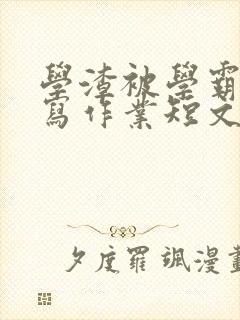 學渣被學霸
寫作業短文
夕度羅颯漫畫